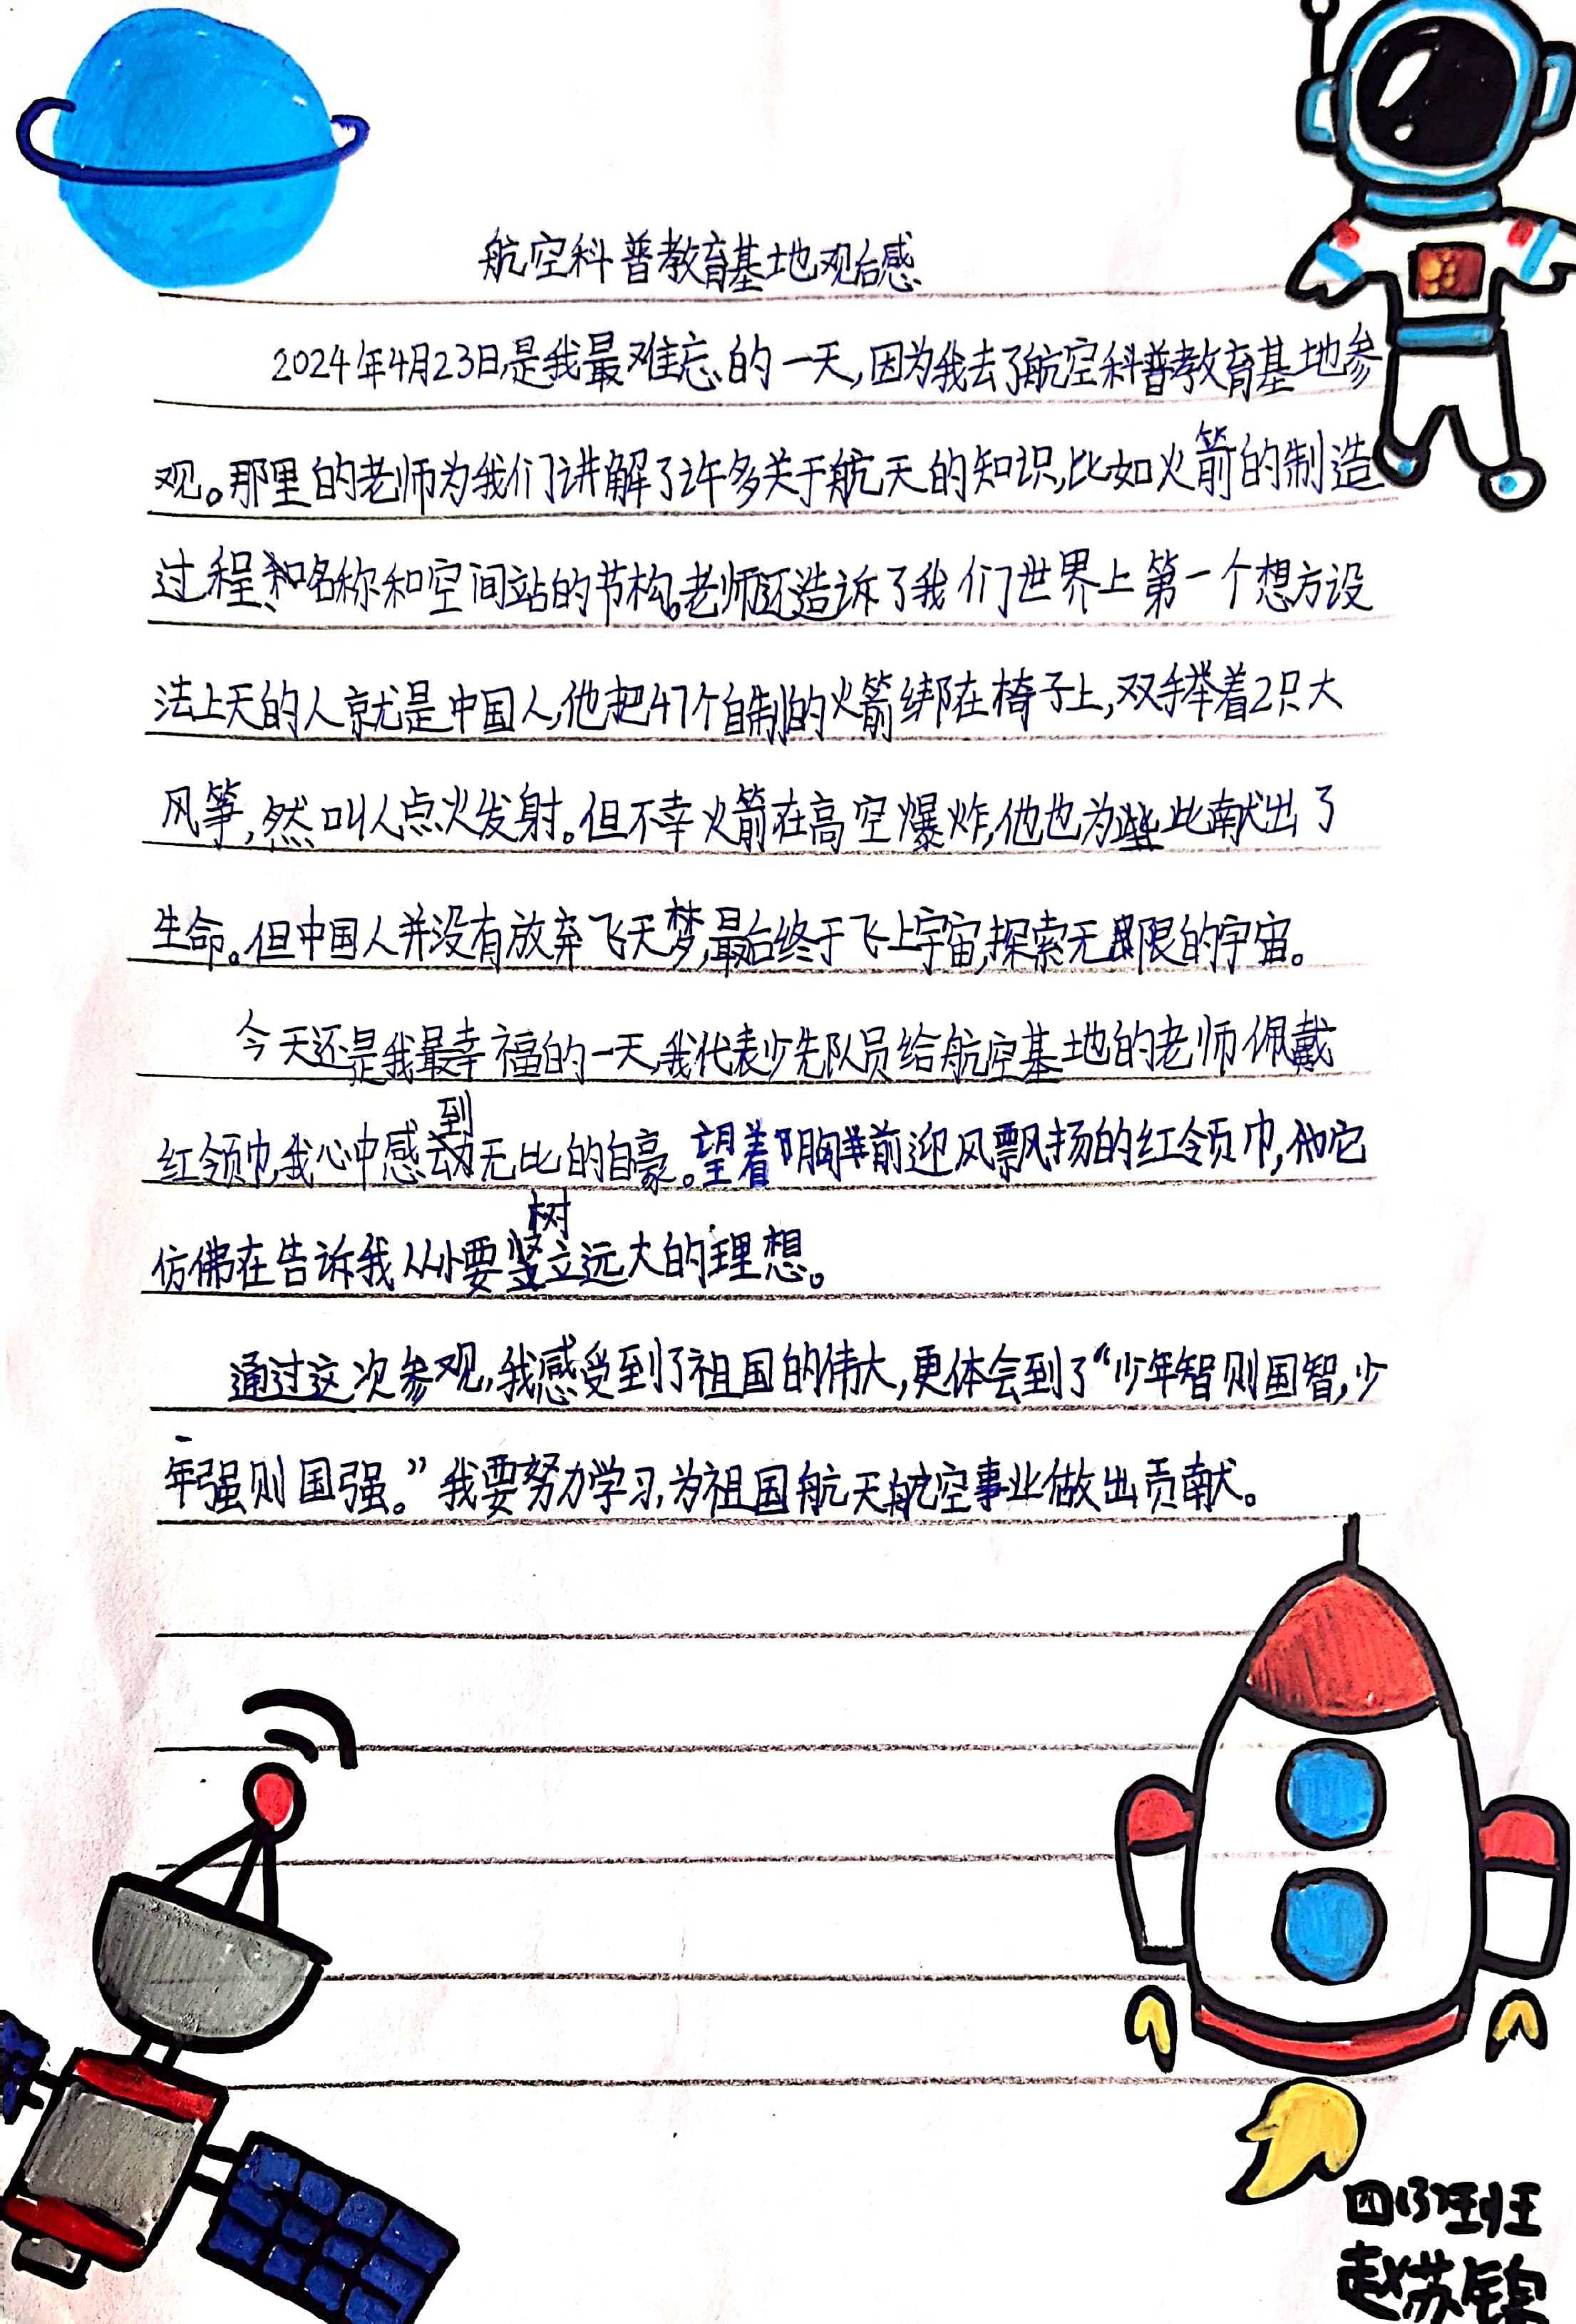 航空科普教育基地观后感
2024年4月23日,是我最难忘的一天,因为我去了航空科普教育基地参
观。那里的老师为我们讲解了许多关于航天的知识,比如火箭的制造
过程、和名称和空间站的节构。老师还造诉了我们世界上第一个想方设
法上天的人就是中国人,他把47个自制的火箭绑在椅子上,双手举着2只大
风筝,然叫人点火发射。但不幸火箭在高空爆炸,他也为此献出了
生命。但中国人并没有放弃飞天梦,最后终于飞上宇宙,探索无限的宇宙。
今天还是我最幸福的一天,我代表少先队员给航空基地的老师佩戴
红领巾,我心中感到无比的自豪。望着胸前迎风飘扬的红领巾,它
仿佛在告诉我从小要树立远大的理想。
通过这次参观,我感受到了祖国的伟大,更体会到了“少年智则国智,少
年强则国强。”我要努力学习,为祖国航天航空事业做出贡献。
赵苏锦